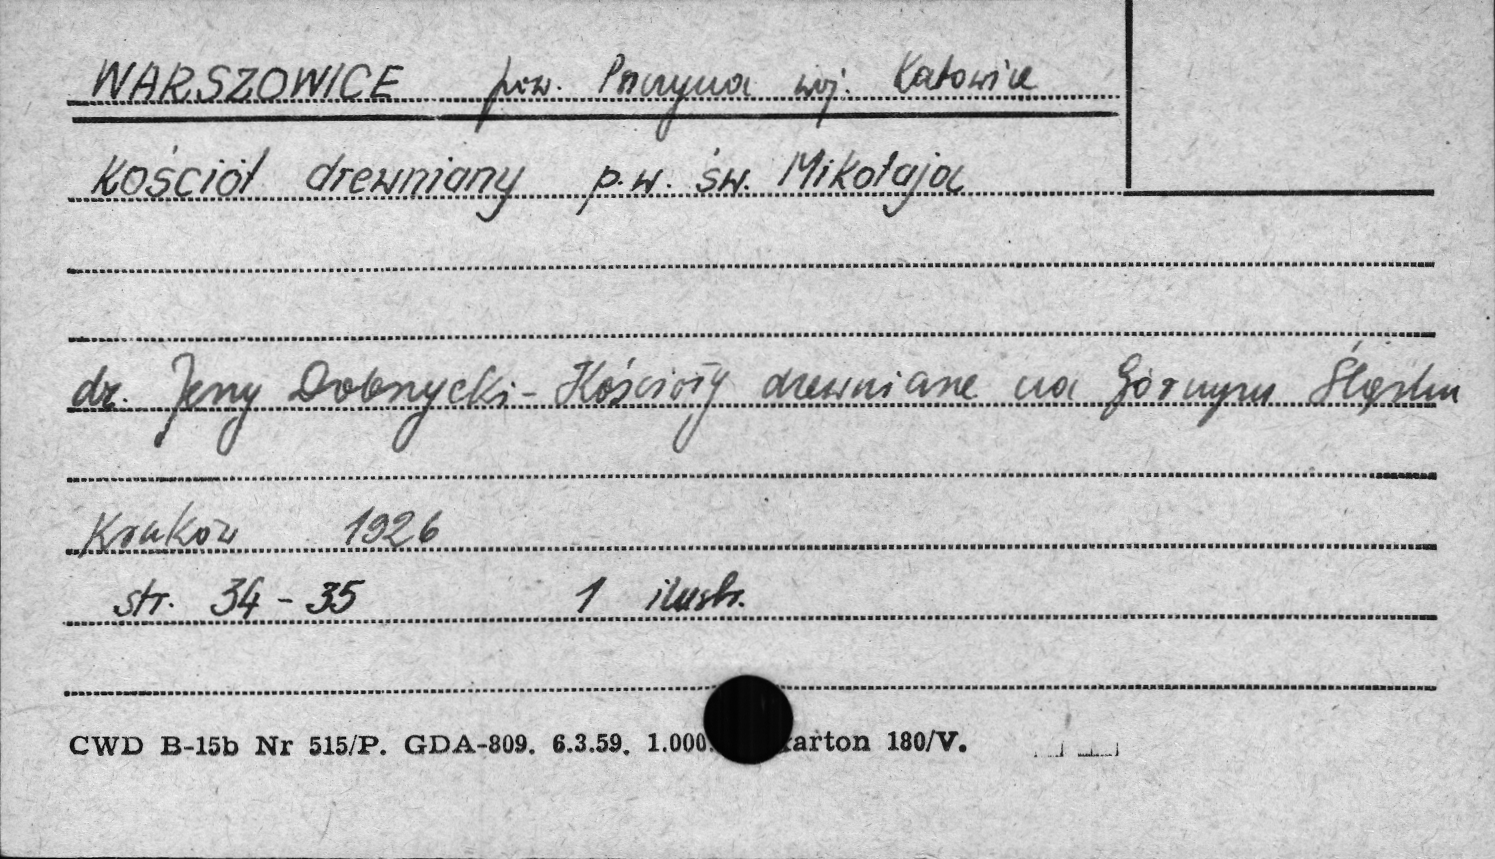 WARSZOWICE pow. Pszczyna woj. Katowice
Kościół drewniany p.w. św. Mikołaja
dr. Jerzy Dobrzycki - Kościoły drewniane na Górnym Śląsku
Kraków 1926
str. 34 - 35 1 ilustr.
CWD B-15b Nr 515/P. GDA-809. 6.3.59. 1.000. karton 180/V.